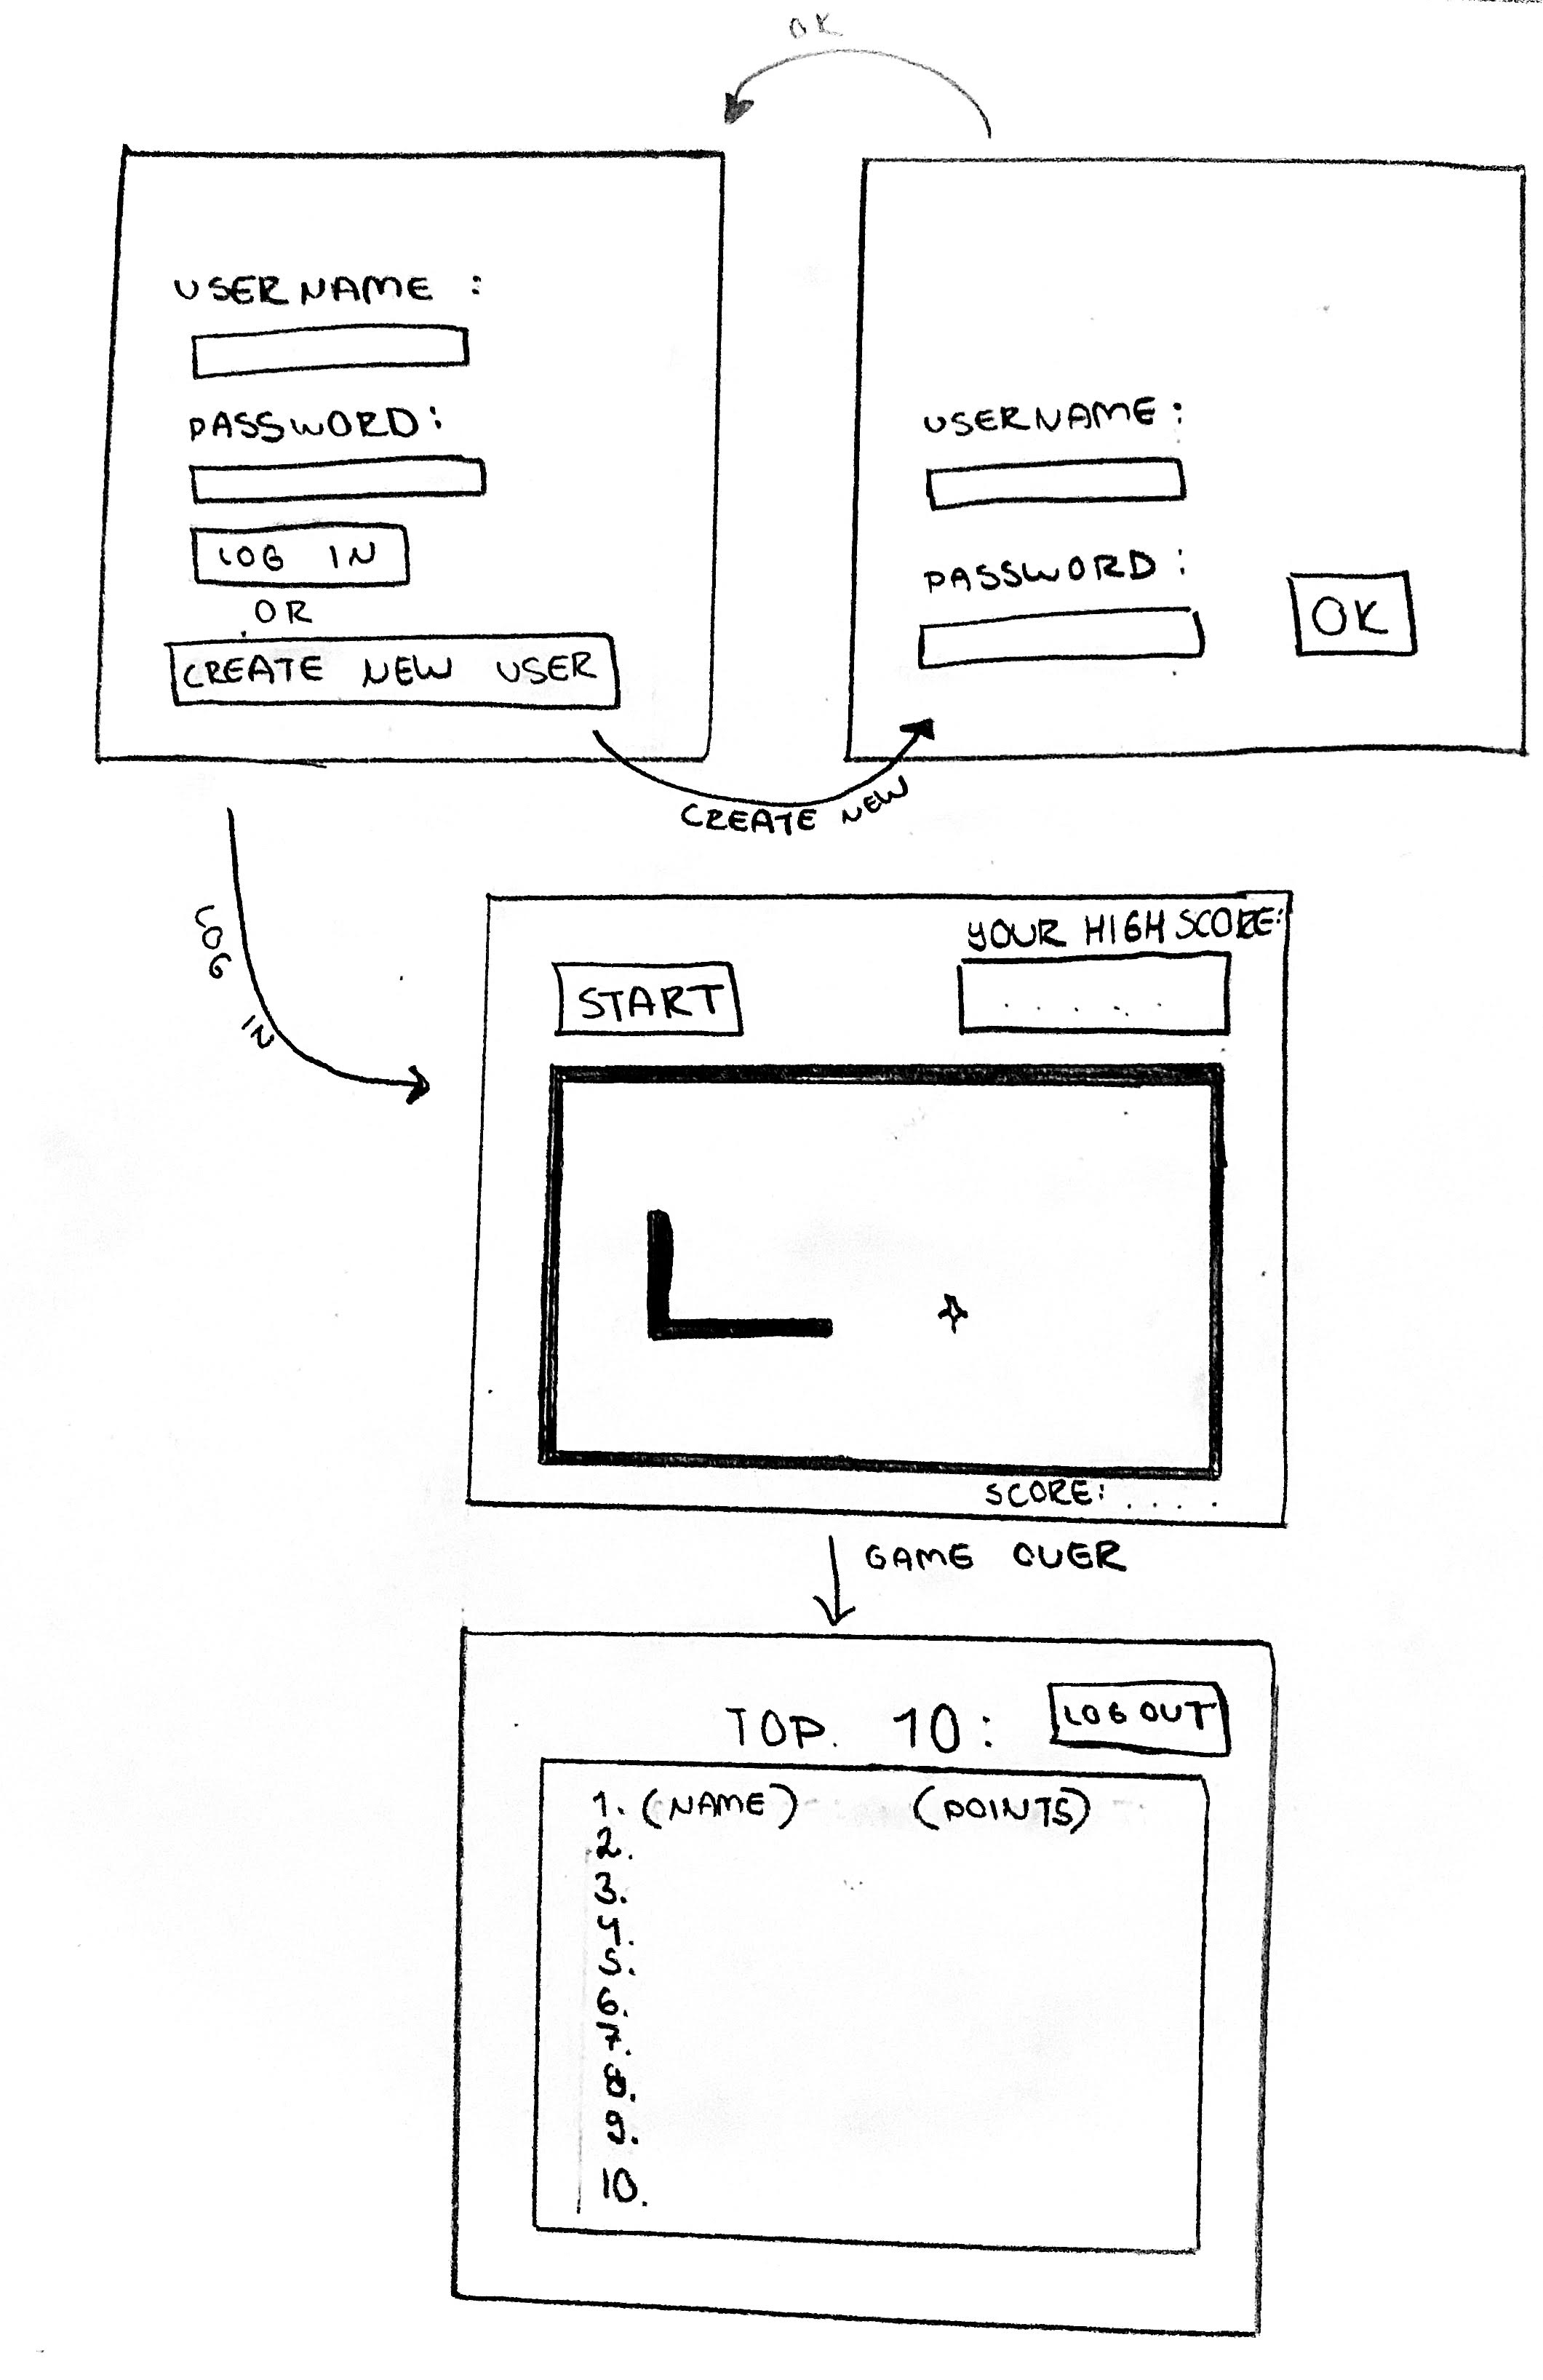 OK
USERNAME :
PASSWORD:
LOG IN
OR
CREATE NEW USER
USERNAME:
PASSWORD:
OK
CREATE NEW
LOG IN
YOUR HIGHSCORE:
START
.....
SCORE: ....
GAME OVER
TOP. 10:
LOG OUT
1. (NAME) (POINTS)
2.
3.
4.
5.
6.
7.
8.
9.
10.